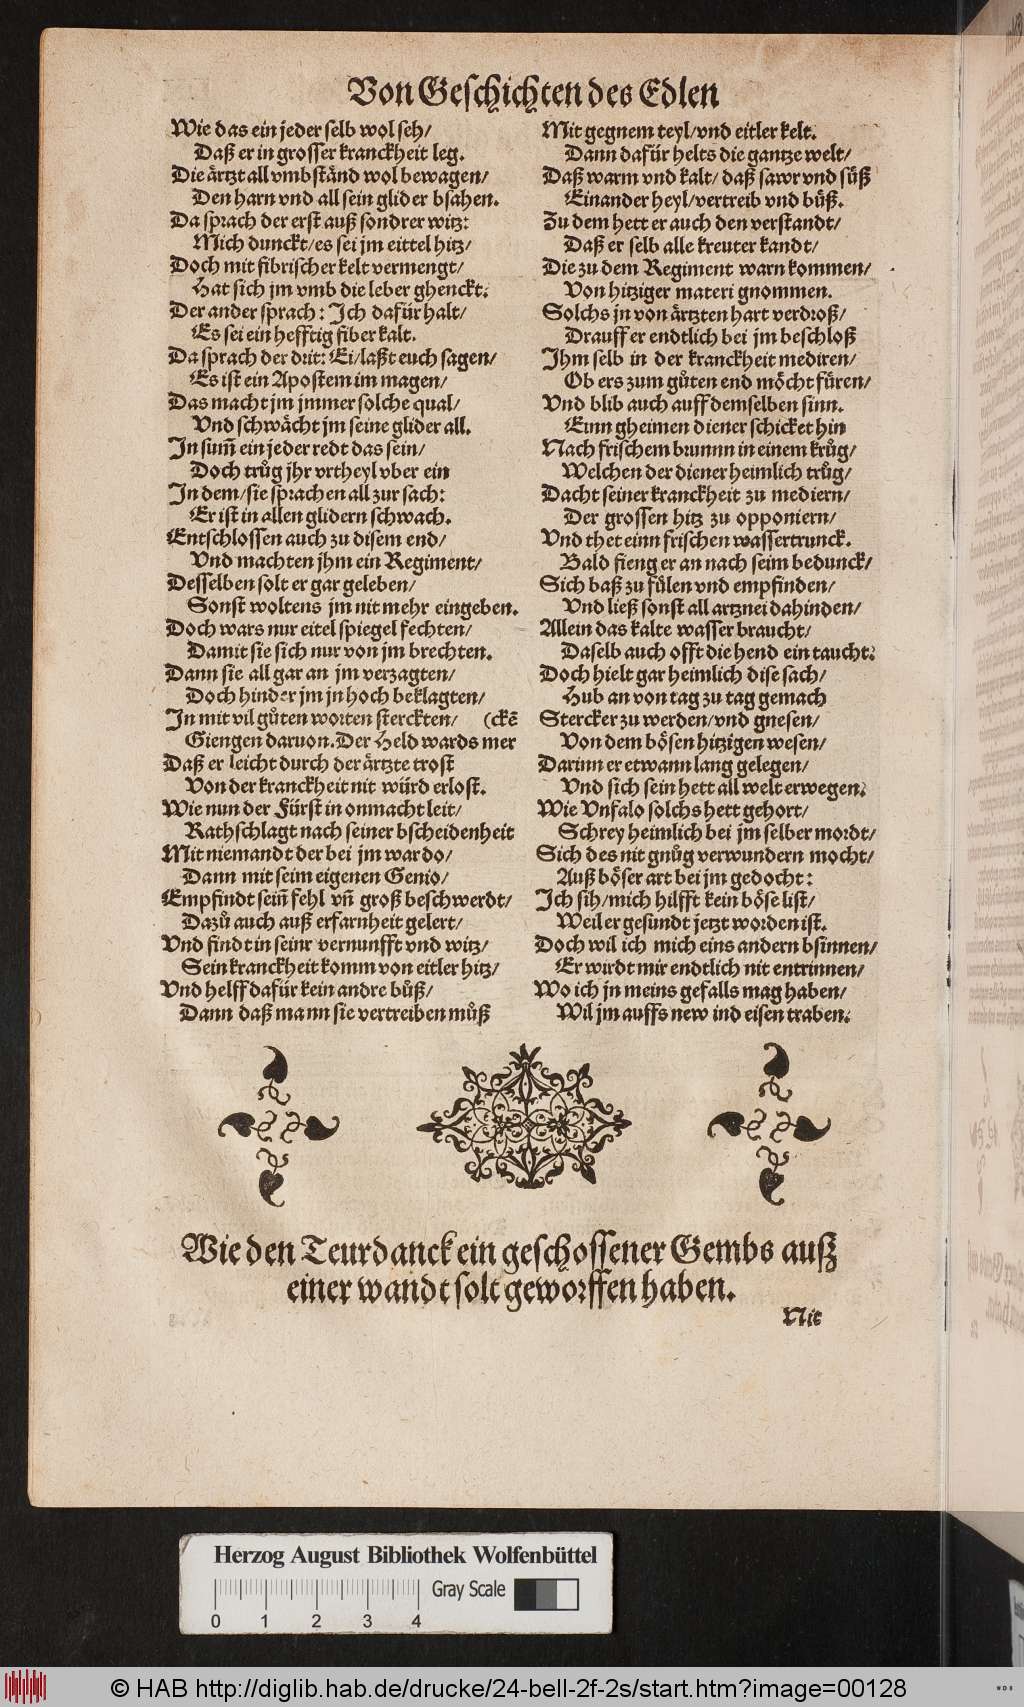 Von Geschichten des Edlen
Wie das ein jeder selb wol seh/
Daß er in grosser kranckheit leg.
Die ärtzt all vmbständ wol bewagen/
Den harn vnd all sein glider bsahen.
Da sprach der erst auß sondrer witz:
Mich dunckt/es sei jm eittel hitz/
Doch mit fibrischer kelt vermengt/
Hat sich jm vmb die leber ghenckt.
Der ander sprach: Ich dafür halt/
Es sei ein hefftig fiber kalt.
Da sprach der drit: Ei/laßt euch sagen/
Es ist ein Apostem im magen/
Das macht jm jmmer solche qual/
Vnd schwächt jm seine glider all.
In sum̃ ein jeder redt das sein/
Doch trůg jhr vrtheyl vber ein
In dem/sie sprachen all zur sach:
Er ist in allen glidern schwach.
Entschlossen auch zu disem end/
Vnd machten jhm ein Regiment/
Desselben solt er gar geleben/
Sonst woltens jm nit mehr eingeben.
Doch wars nur eitel spiegel fechten/
Damit sie sich nur von jm brechten.
Dann sie all gar an jm verzagten/
Doch hinder jm jn hoch beklagten/
In mit vil gůten worten sterckten/ (ckẽ
Giengen daruon. Der Held wards mer
Daß er leicht durch der ärtzte trost
Von der kranckheit nit würd erlost.
Wie nun der Fürst in onmacht leit/
Rathschlagt nach seiner bscheidenheit
Mit niemandt der bei jm war do/
Dann mit seim eigenen Genio/
Empfindt sein̄ fehl vn̄ groß beschwerdt/
Dazů auch auß erfarnheit gelert/
Vnd findt in seinr vernunfft vnd witz/
Sein kranckheit komm von eitler hitz/
Vnd helff dafür kein andre bůß/
Dann daß mann sie vertreiben můß
Mit gegnem teyl/vnd eitler kelt.
Dann dafür helts die gantze welt/
Daß warm vnd kalt/ daß sawr vnd süß
Einander heyl/vertreib vnd büß.
Zu dem hett er auch den verstandt/
Daß er selb alle kreuter kandt/
Die zu dem Regiment warn kommen/
Von hitziger materi gnommen.
Solchs jn von ärtzten hart verdroß/
Drauff er endtlich bei jm beschloß
Ihm selb in der kranckheit mediren/
Ob ers zum gůten end möcht füren/
Vnd blib auch auff demselben sinn.
Einn gheimen diener schicket hin
Nach frischem brunnn in einem krůg/
Welchen der diener heimlich trůg/
Dacht seiner kranckheit zu mediern/
Der grossen hitz zu opponiern/
Vnd thet einn frischen wassertrunck.
Bald fieng er an nach seim bedunck/
Sich baß zu fülen vnd empfinden/
Vnd ließ sonst all artznei dahinden/
Allein das kalte wasser braucht/
Daselb auch offt die hend ein taucht:
Doch hielt gar heimlich dise sach/
Hub an von tag zu tag gemach
Stercker zu werden/vnd gnesen/
Von dem bösen hitzigen wesen/
Darinn er etwann lang gelegen/
Vnd sich sein hett all welt erwegen.
Wie Vnfalo solchs hett gehort/
Schrey heimlich bei jm selber mordt/
Sich des nit gnůg verwundern mocht/
Auß böser art bei jm gedocht:
Ich sih/mich hilfft kein böse list/
Weil er gesundt jetzt worden ist.
Doch wil ich mich eins andern bsinnen/
Er wirdt mir endtlich nit entrinnen/
Wo ich jn meins gefalls mag haben/
Wil jm auffs new ind eisen traben.
Wie den Teurdanck ein geschossener Gembs auß
einer wandt solt geworffen haben.
Nit
Herzog August Bibliothek Wolfenbüttel
Gray Scale
0 1 2 3 4
© HAB http://diglib.hab.de/drucke/24-bell-2f-2s/start.htm?image=00128